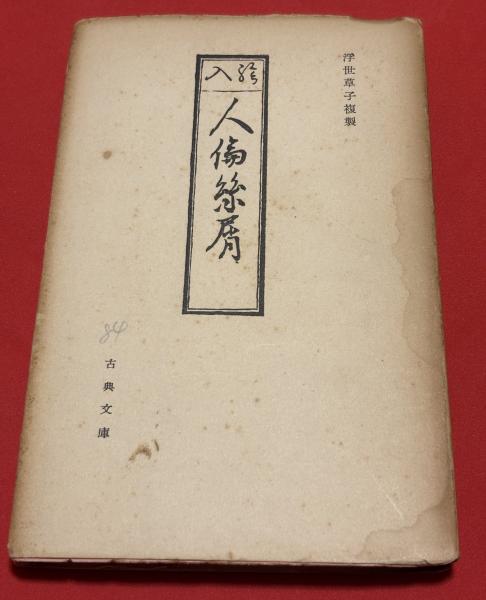 浮世草子複製
絵入
人倫糸屑
84
古典文庫